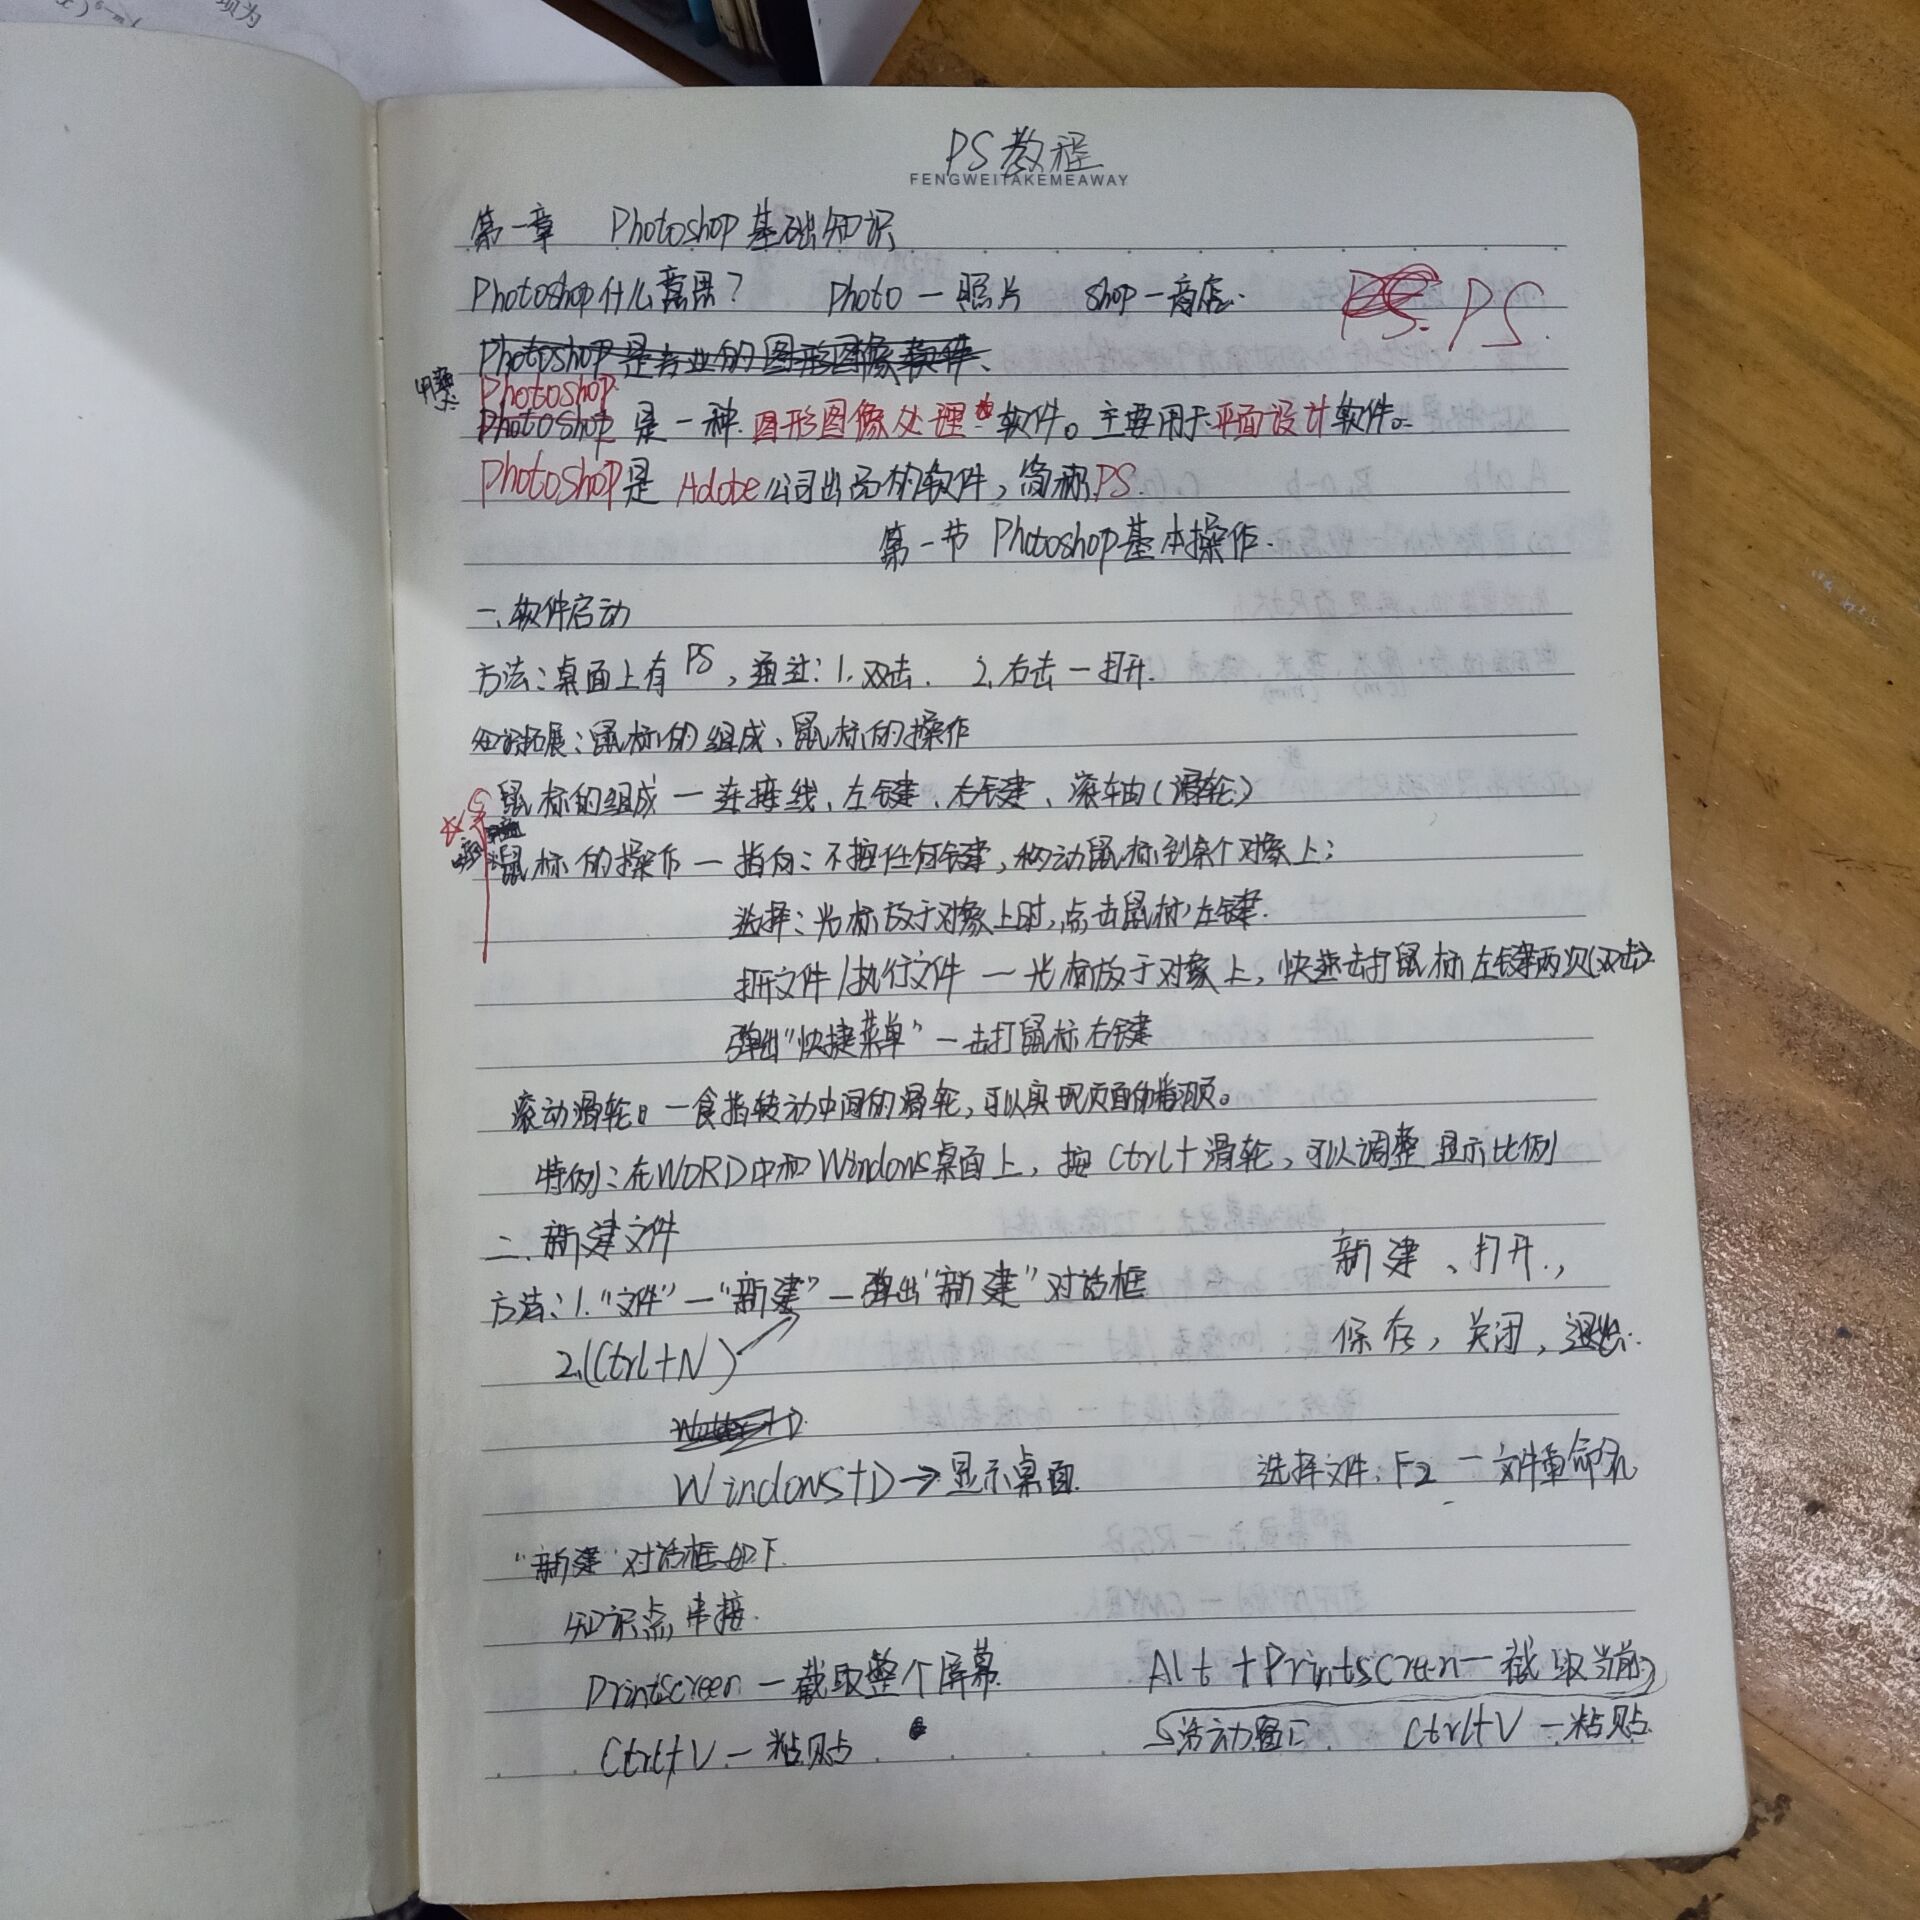 PS教程
FENGWEITAKEMEAWAY
第一章 Photoshop基础知识
Photoshop什么意思? Photo—照片 shop—商店. PS.
Photoshop是专业的图形图像软件.
Photoshop
Photoshop是一种图形图像处理软件。主要用于平面设计软件。
Photoshop是Adobe公司出品的软件,简称PS.
第一节 Photoshop基本操作.
一、软件启动
方法:桌面上有PS,通过:1.双击. 2.右击—打开.
知识拓展:鼠标的组成、鼠标的操作
鼠标的组成—连接线、左键、右键、滚轴(滑轮)
鼠标的操作—指向:不按任何键,移动鼠标到某个对象上;
选择:光标放于对象上时,点击鼠标左键.
打开文件/执行文件—光标放于对象上,快速击打鼠标左键两次(双击)
弹出"快捷菜单"—击打鼠标右键
滚动滑轮。—食指转动中间的滑轮,可以实现页面的翻页。
特例:在WORD中和Windows桌面上,按Ctrl+滑轮,可以调整显示比例
二、新建文件
新建、打开.,
方法:1."文件"—"新建"—弹出"新建"对话框
保存,关闭,退出.
2.(Ctrl+N)
Windows+D→显示桌面. 选择文件.F2—文件重命名
"新建"对话框如下.
知识点串接.
Printscreen—截取整个屏幕 Alt+Printscreen—截取当前
Ctrl+V—粘贴 活动窗口 Ctrl+V—粘贴.